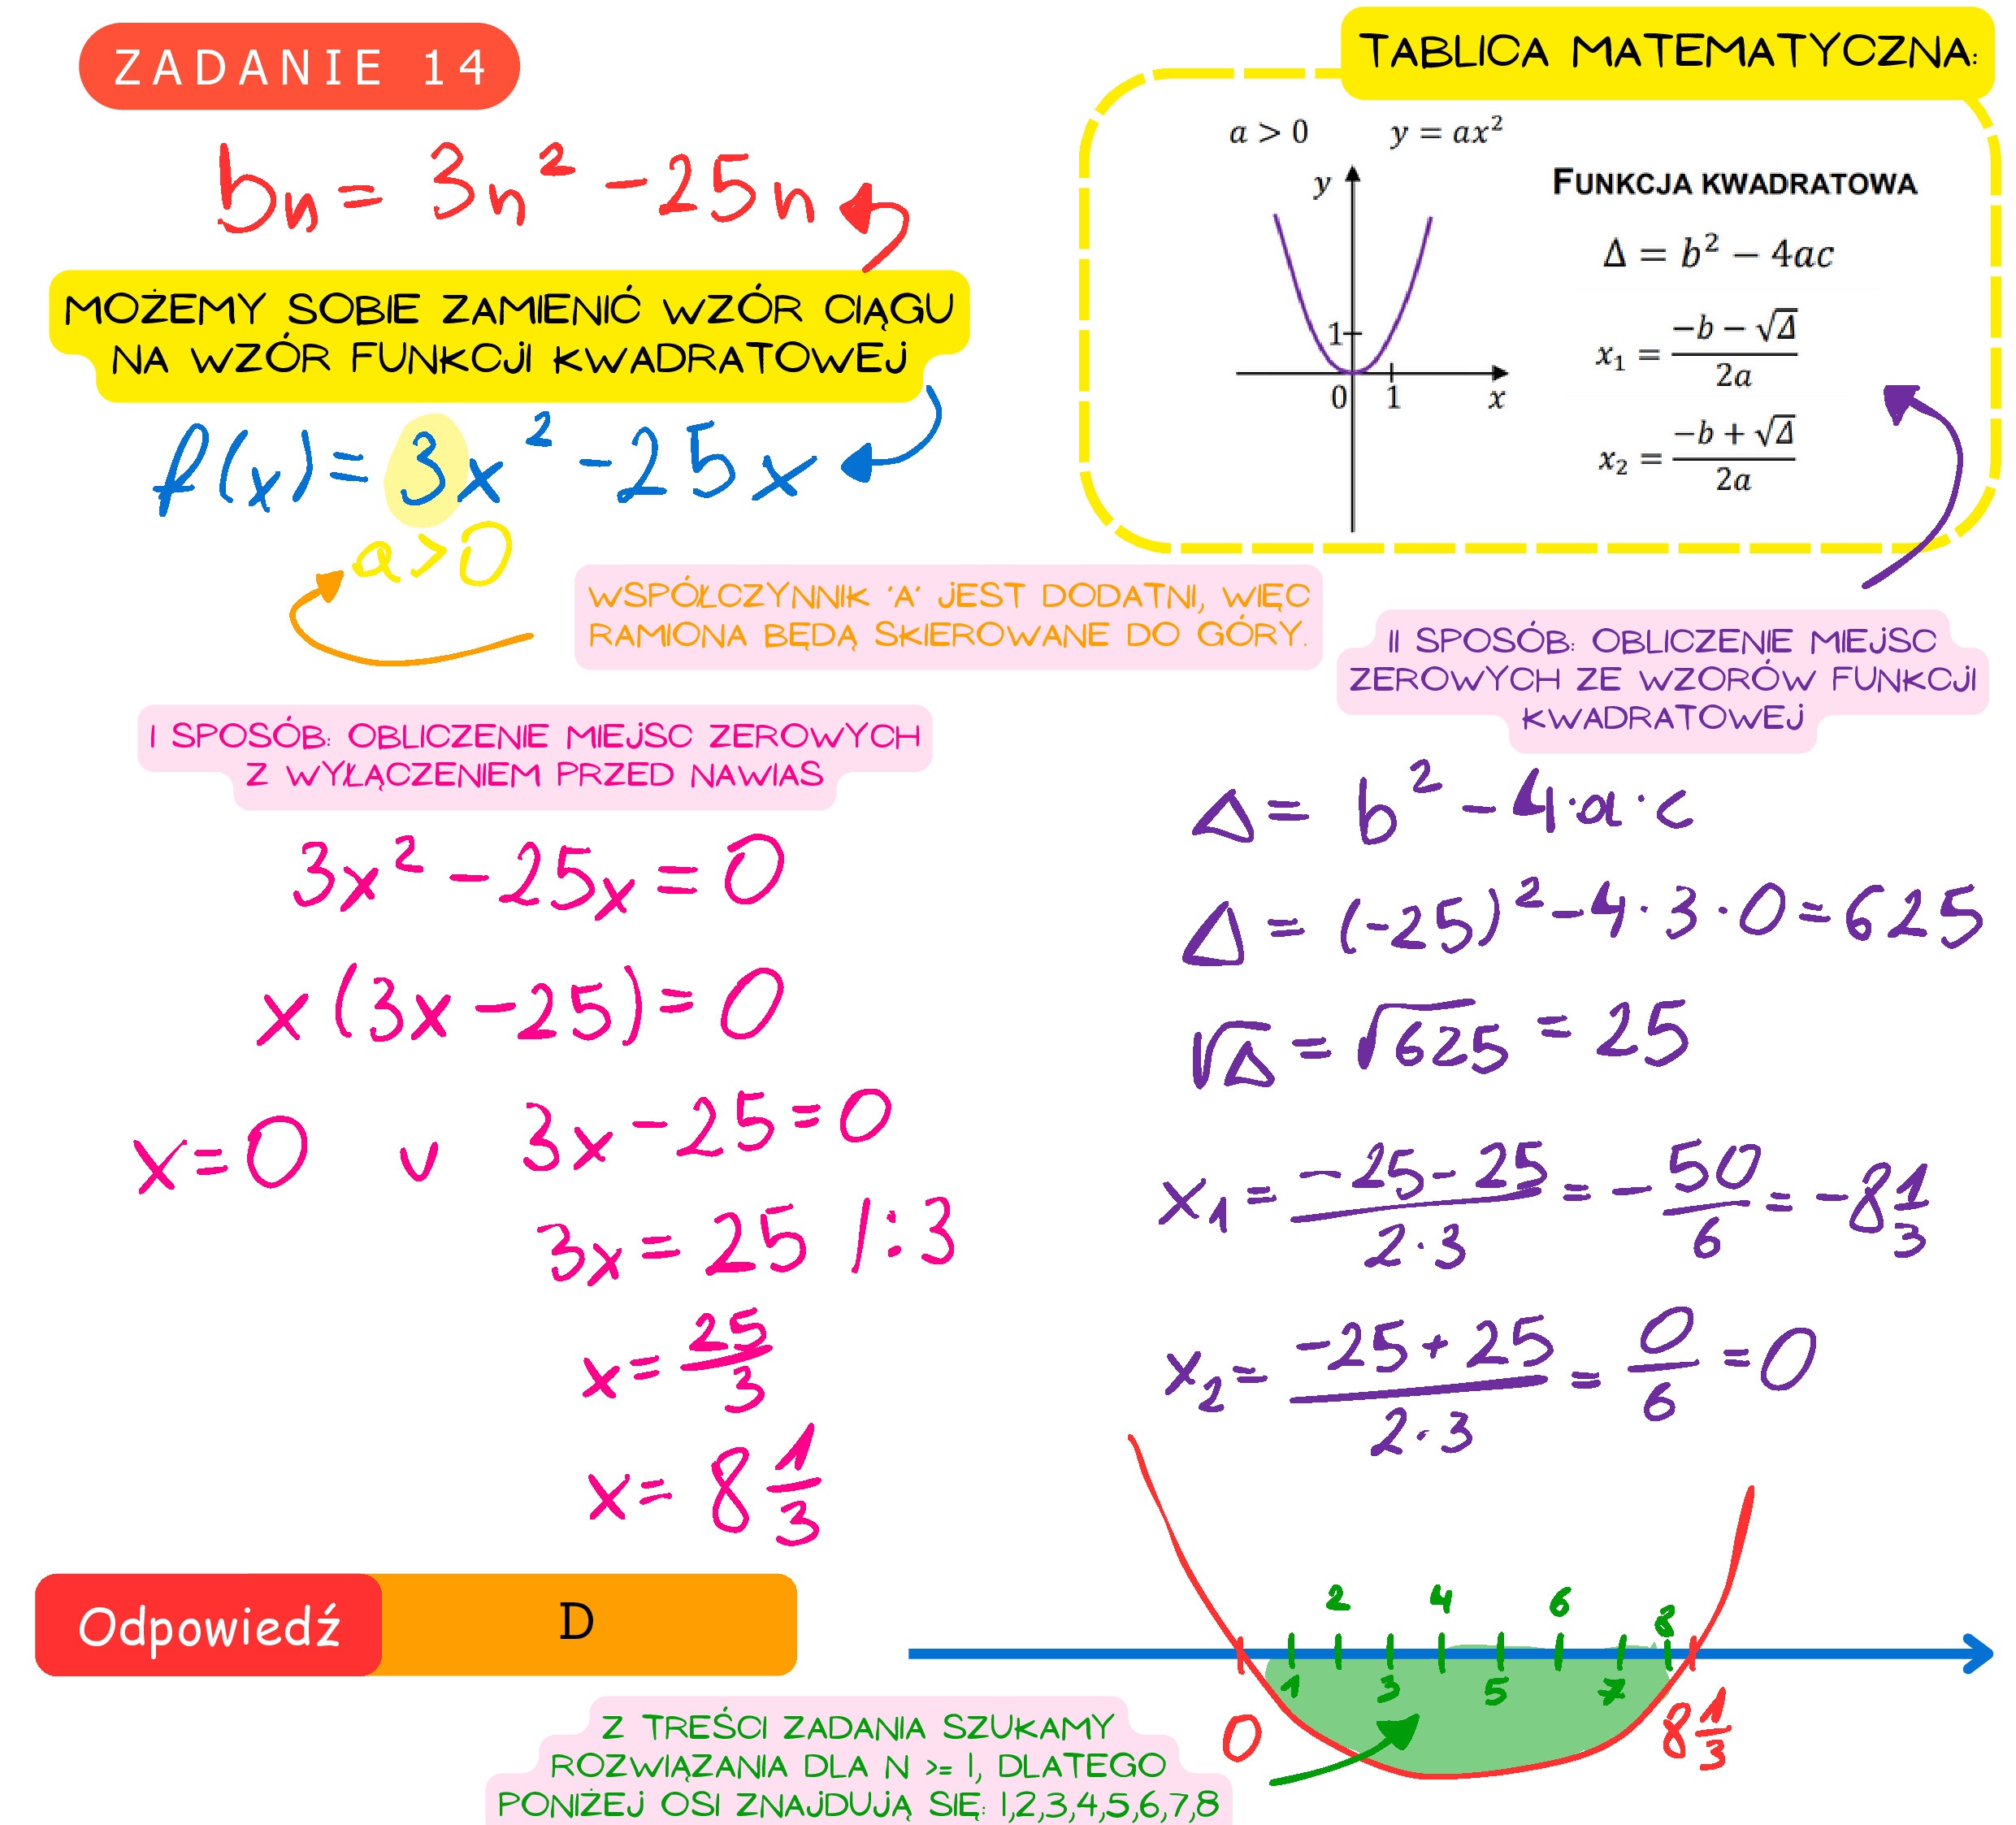 ZADANIE 14
bn = 3n² - 25n
MOŻEMY SOBIE ZAMIENIĆ WZÓR CIĄGU
NA WZÓR FUNKCJI KWADRATOWEJ
f(x) = 3x² - 25x
a > 0
WSPÓŁCZYNNIK 'A' JEST DODATNI, WIĘC
RAMIONA BĘDĄ SKIEROWANE DO GÓRY.
TABLICA MATEMATYCZNA:
a > 0
y = ax²
y
1
0
1
x
FUNKCJA KWADRATOWA
Δ = b² − 4ac
x₁ = (−b − √Δ)/2a
x₂ = (−b + √Δ)/2a
I SPOSÓB: OBLICZENIE MIEJSC ZEROWYCH
Z WYŁĄCZENIEM PRZED NAWIAS
3x² - 25x = 0
x(3x - 25) = 0
x = 0 v 3x - 25 = 0
3x = 25 /:3
x = 25/3
x = 8 1/3
II SPOSÓB: OBLICZENIE MIEJSC
ZEROWYCH ZE WZORÓW FUNKCJI
KWADRATOWEJ
Δ = b² - 4·a·c
Δ = (-25)² - 4·3·0 = 625
√Δ = √625 = 25
x₁ = (-25 - 25)/(2·3) = -50/6 = -8 1/3
x₂ = (-25 + 25)/(2·3) = 0/6 = 0
Odpowiedź
D
2 4 6 8
1 3 5 7
0
8 1/3
Z TREŚCI ZADANIA SZUKAMY
ROZWIĄZANIA DLA N >= 1, DLATEGO
PONIŻEJ OSI ZNAJDUJĄ SIĘ: 1,2,3,4,5,6,7,8